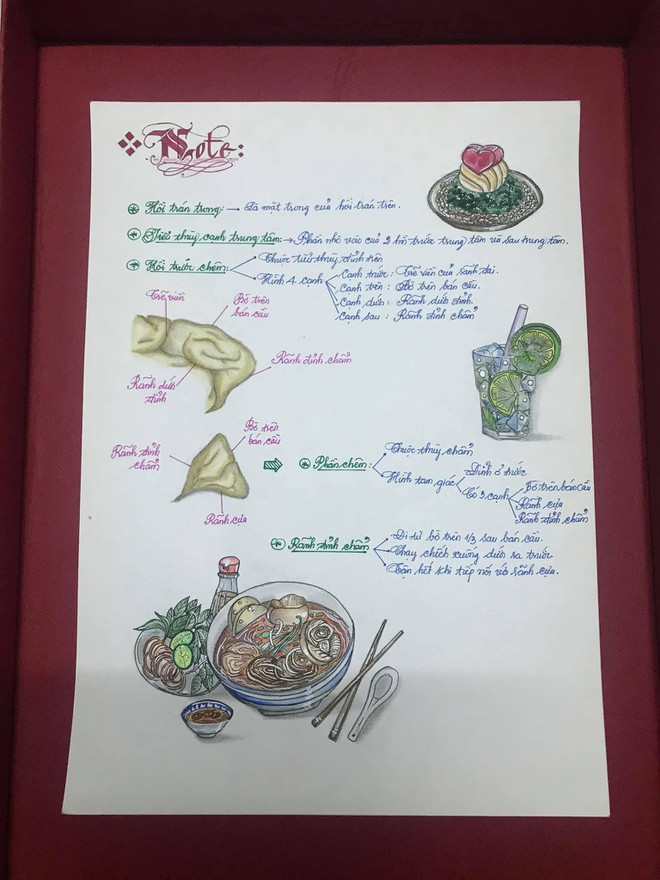 Note:
Hồi trán trong: → Là mặt trong của hồi trán trên.
Tiểu thùy cạnh trung tâm: → Phần nhỏ vào của 2 hồi trước trung tâm và sau trung tâm.
Hồi trước chêm:
Thuộc tiểu thùy đỉnh trên
Hình 4 cạnh
Cạnh trước: Trẽ viền của rãnh đai.
Cạnh trên: Bờ trên bán cầu.
Cạnh dưới: Rãnh dưới đỉnh.
Cạnh sau: Rãnh đỉnh chẩm
Trẽ viền
Bờ trên
bán cầu
Rãnh đỉnh chẩm
Rãnh dưới
đỉnh
Bờ trên
bán cầu
Rãnh đỉnh
chẩm
Rãnh cựa
Phần chêm:
Thuộc thùy chẩm
Hình tam giác
Đỉnh ở trước
Có 3 cạnh
Bờ trên bán cầu
Rãnh cựa
Rãnh đỉnh chẩm
Rãnh đỉnh chẩm
Đi từ bờ trên 1/3 sau bán cầu.
Chạy chếch xuống dưới ra trước
Tận hết khi tiếp nối với rãnh cựa.